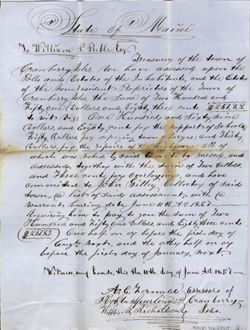 State of Maine
To William P. Preble Esq.
Treasurer of the Town of
Cranberry Isles. We have assessed upon the
Polls and Estates of the Inhabitants, and the Estates
of the nonresident Proprietors of the Town
of Cranberry Isles the Sum of Two Hundred and
Fifty one Dollars and Eighty three cents $251.83
to wit Viz: One Hundred and Sixty nine
Dollars, and Eighty cents for the support of Schools
Fifty Dollars for repairing town charges and Thirty
Dollars for the repairs of Highways all of
which one voted to be raised and
assessed, together with the sum of Two Dollars
and Three cents for overlaying and have
committed to John Gilley Collector of said
town, a List of said Assessment, with a
Warrant bearing date June 10th A.D. 1858.
Requiring him to pay to you the sum of Two
Hundred and Fifty One Dollars and Eighty three cents
$251.83 One half on or before the first day of
next, and the other half on or
before the first day of January next.
Witness our hands this the 10th day of June A.D. 1858
A. C. Fernald Assessors of
Spurling Cranberry
M. Richardson Isles.